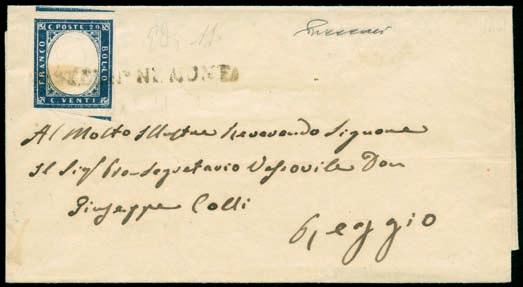 C. POSTE 20
FRANCO
BOLLO
C. VENTI
Al Molto Illustre Reverendo Signore
Il Sigr Pro-Segretario Vescovile Don
Giuseppe Colli
Reggio